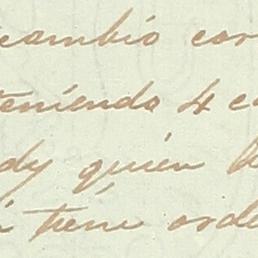 cambio con
teniendo 4 c
dy quien h
tiene orde